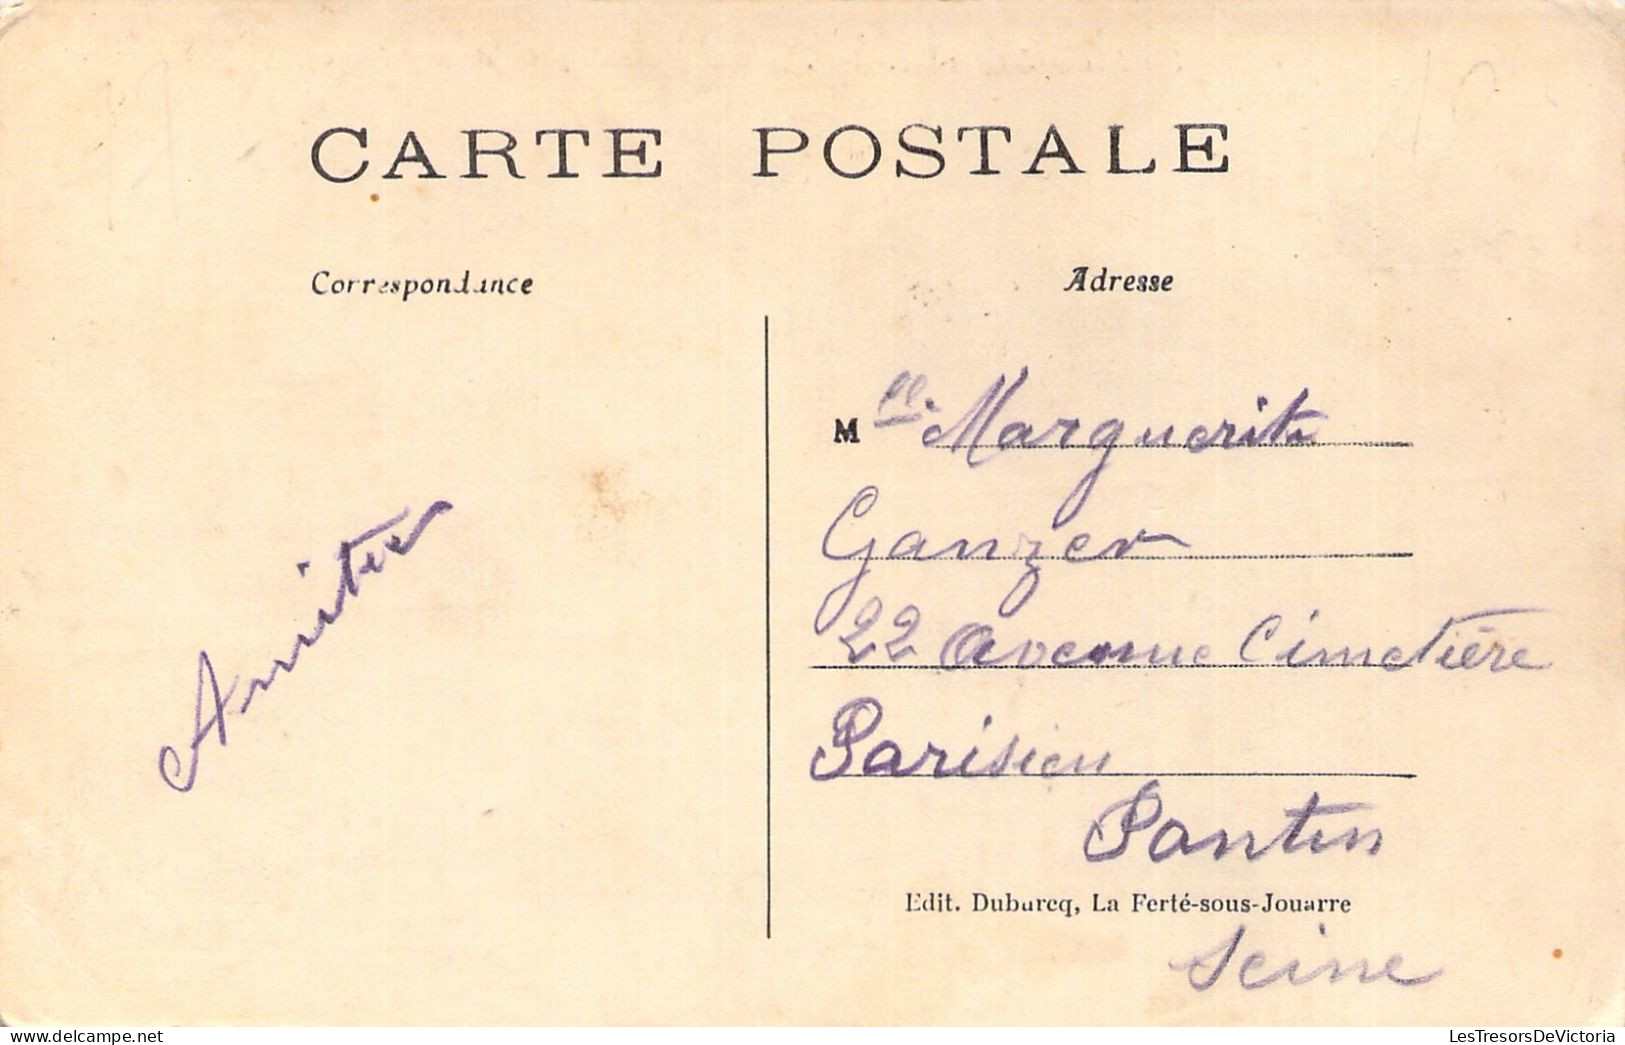 CARTE POSTALE
Correspondance
Adresse
Amitiés
M elle Marguerite
Ganzer
22 Avenue Cimetière
Parisien
Pantin
Edit. Duburcq, La Ferté-sous-Jouarre
Seine
LesTresorsDeVictoria.com